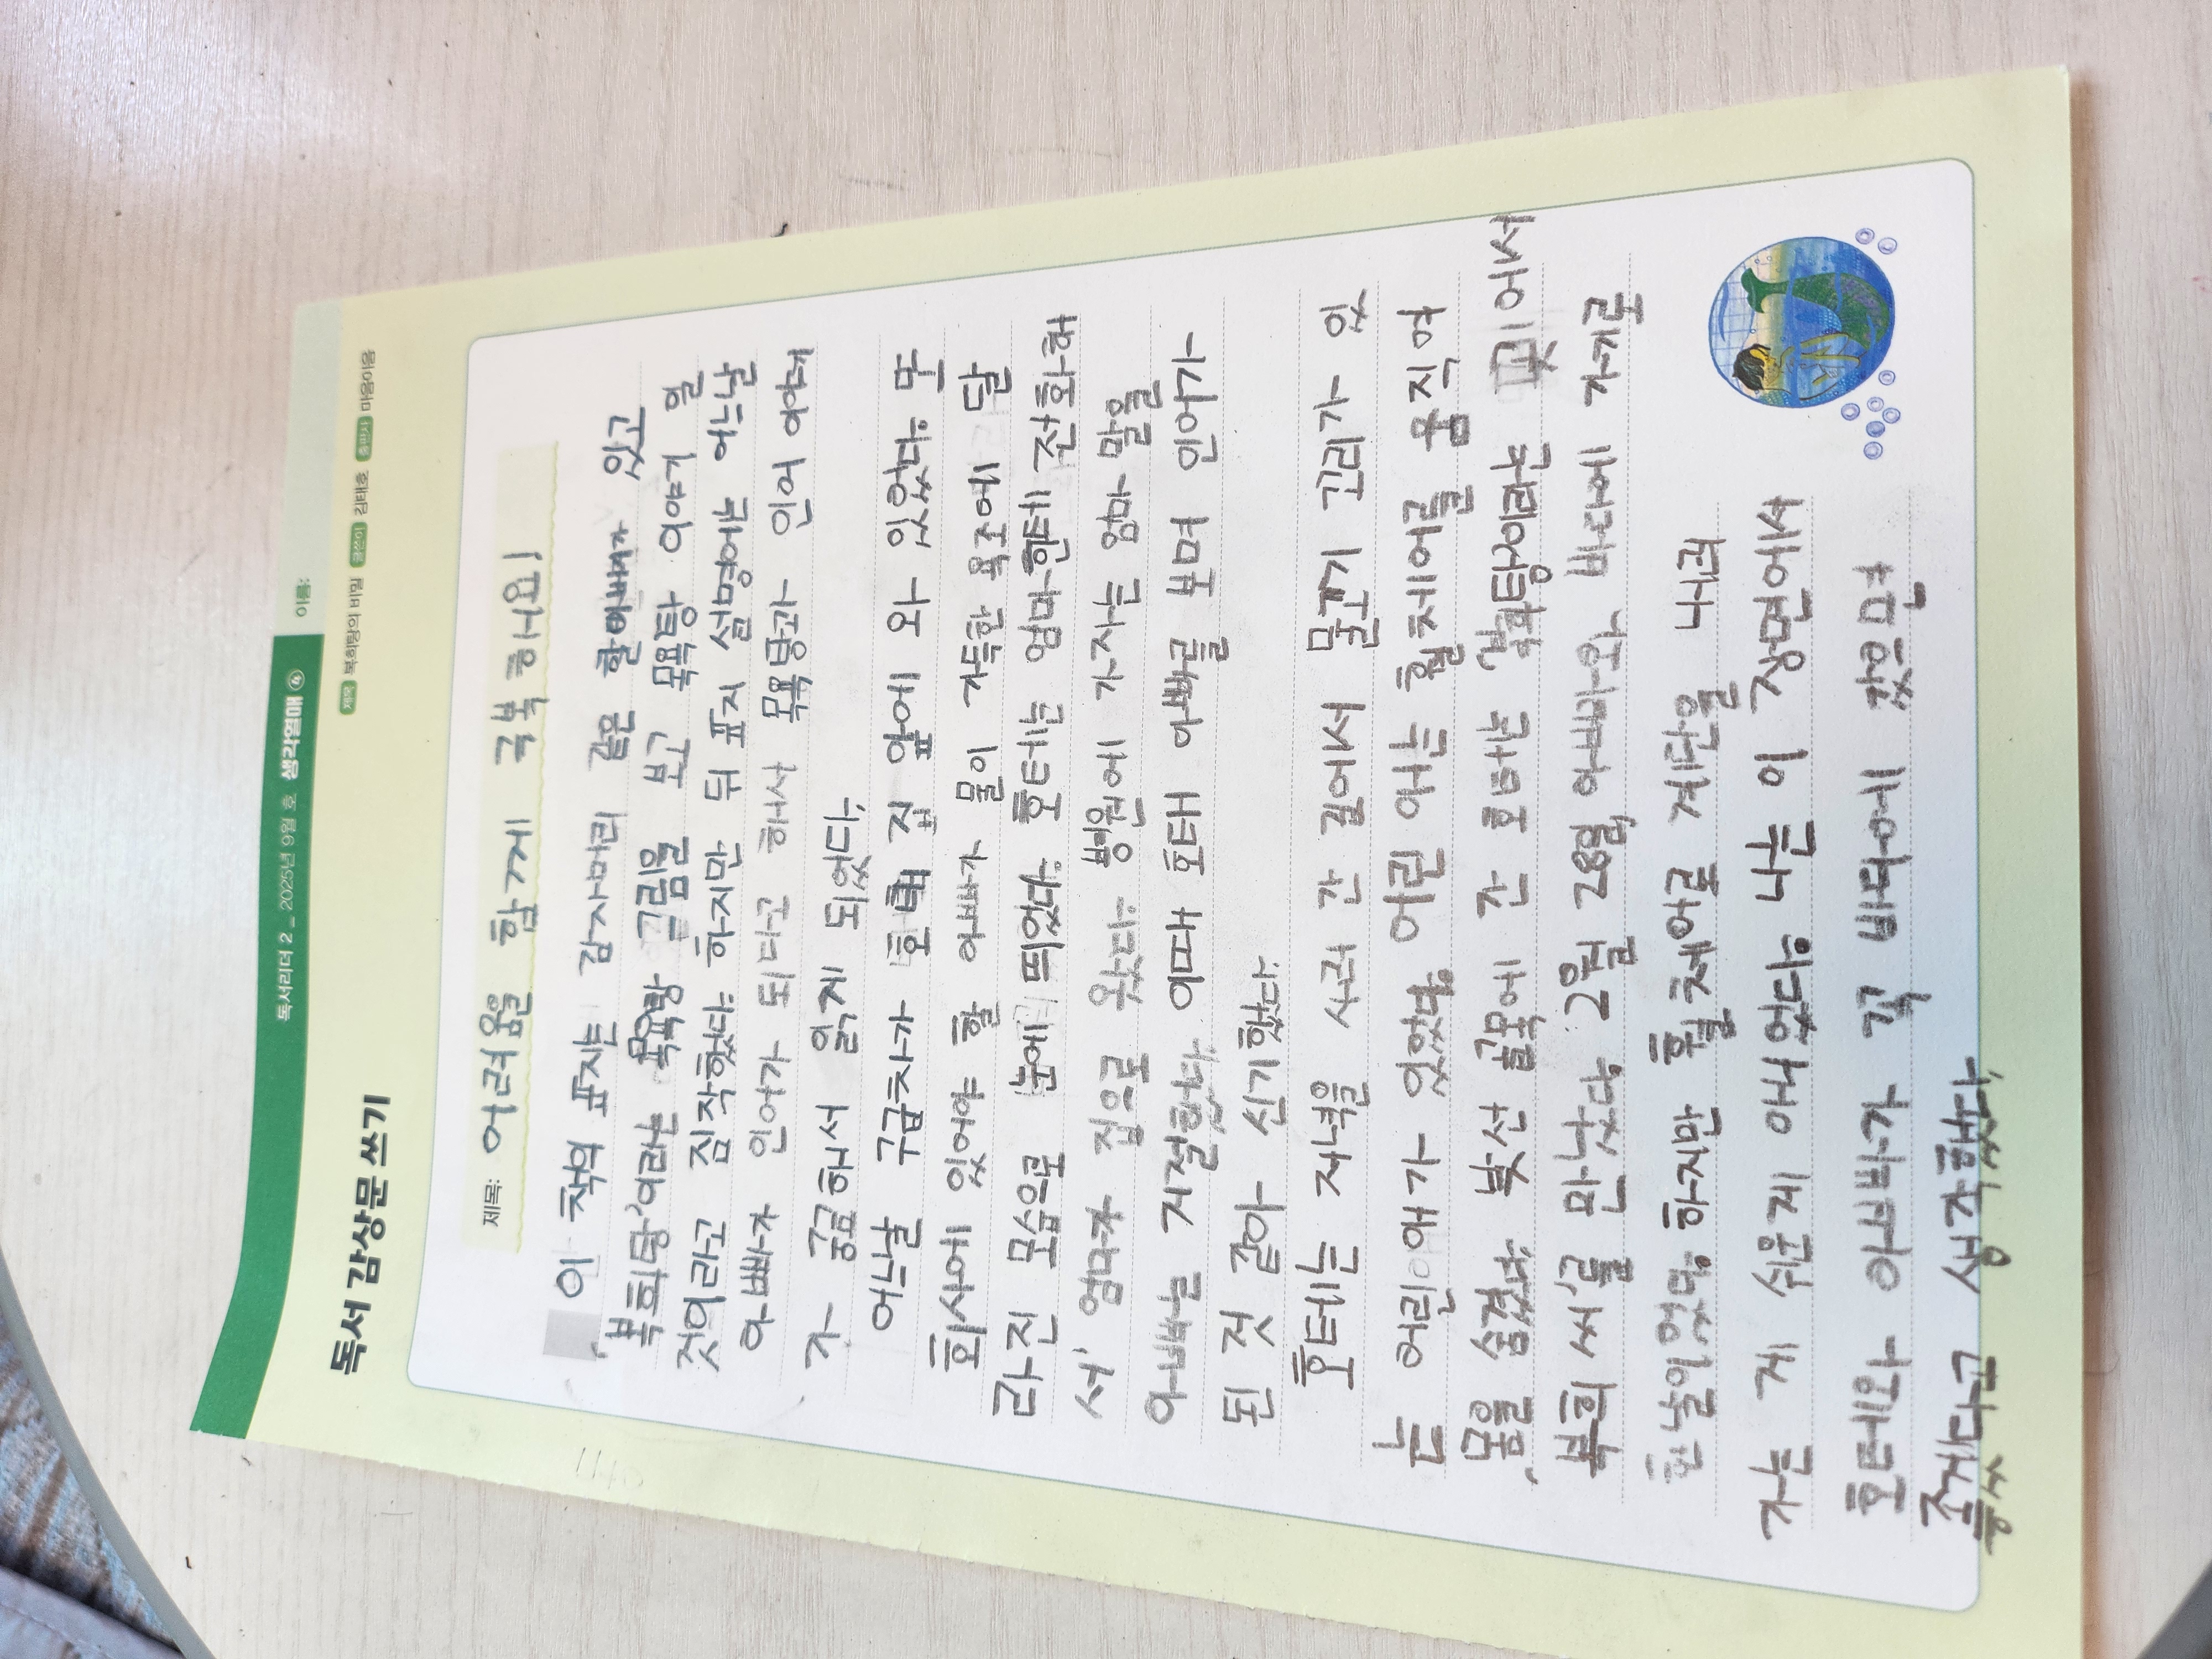 독서리더 2 _ 2025년 9월 호 생각열매 ④
이름:
독서 감상문 쓰기
제목 복희탕의 비밀 글쓴이 김태호 출판사 마음이음
제목: 어려움을 함께 극복해요!
이 책의 표지는 감자머리 같은 할아버지가 있고
'복희탕'이라는 목욕탕 그림을 보고 목욕탕 이야기 일
것이라고 짐작했다. 하지만 뒤 표지 설명에는 어느날
아빠가 인어가 되다고 해서 목욕탕과 인어 이야기
가 궁금해서 읽게 되었다.
어느날 구급차가 호태 집 앞에 와 있었다. 또
회사에 있어야 할 아빠가 물이 가득한 욕조에 달
라진 모습으로 눈에 띄었다. 호태는 엄마한테 전화해
서 엄마가 집으로 왔다. 병원에 가자는 엄마 말을
아빠는 거절했다. 이때 호태 아빠를 보며 인어가
된 것 같아 신기했다.
호태는 저녁을 사러 간 길에서 물고기 꼬리가 있
는 어린애가 있었다. 어린 애는 휠체어를 움직여
몸을 숨겼다. 낯선 골목에 간 호태는 '복희탕'이라는 곳에서
'복희 씨'를 만났다. 2월 28일, 아빠와 바다에 가기로
한 날이었다. 하지만 휠체어로 계단을 내려
가는 게 쉬운게 아니었다. 나는 이 장면에서
호태와 아빠가 꼭 바다에 갔으면
좋겠다고 생각했다.